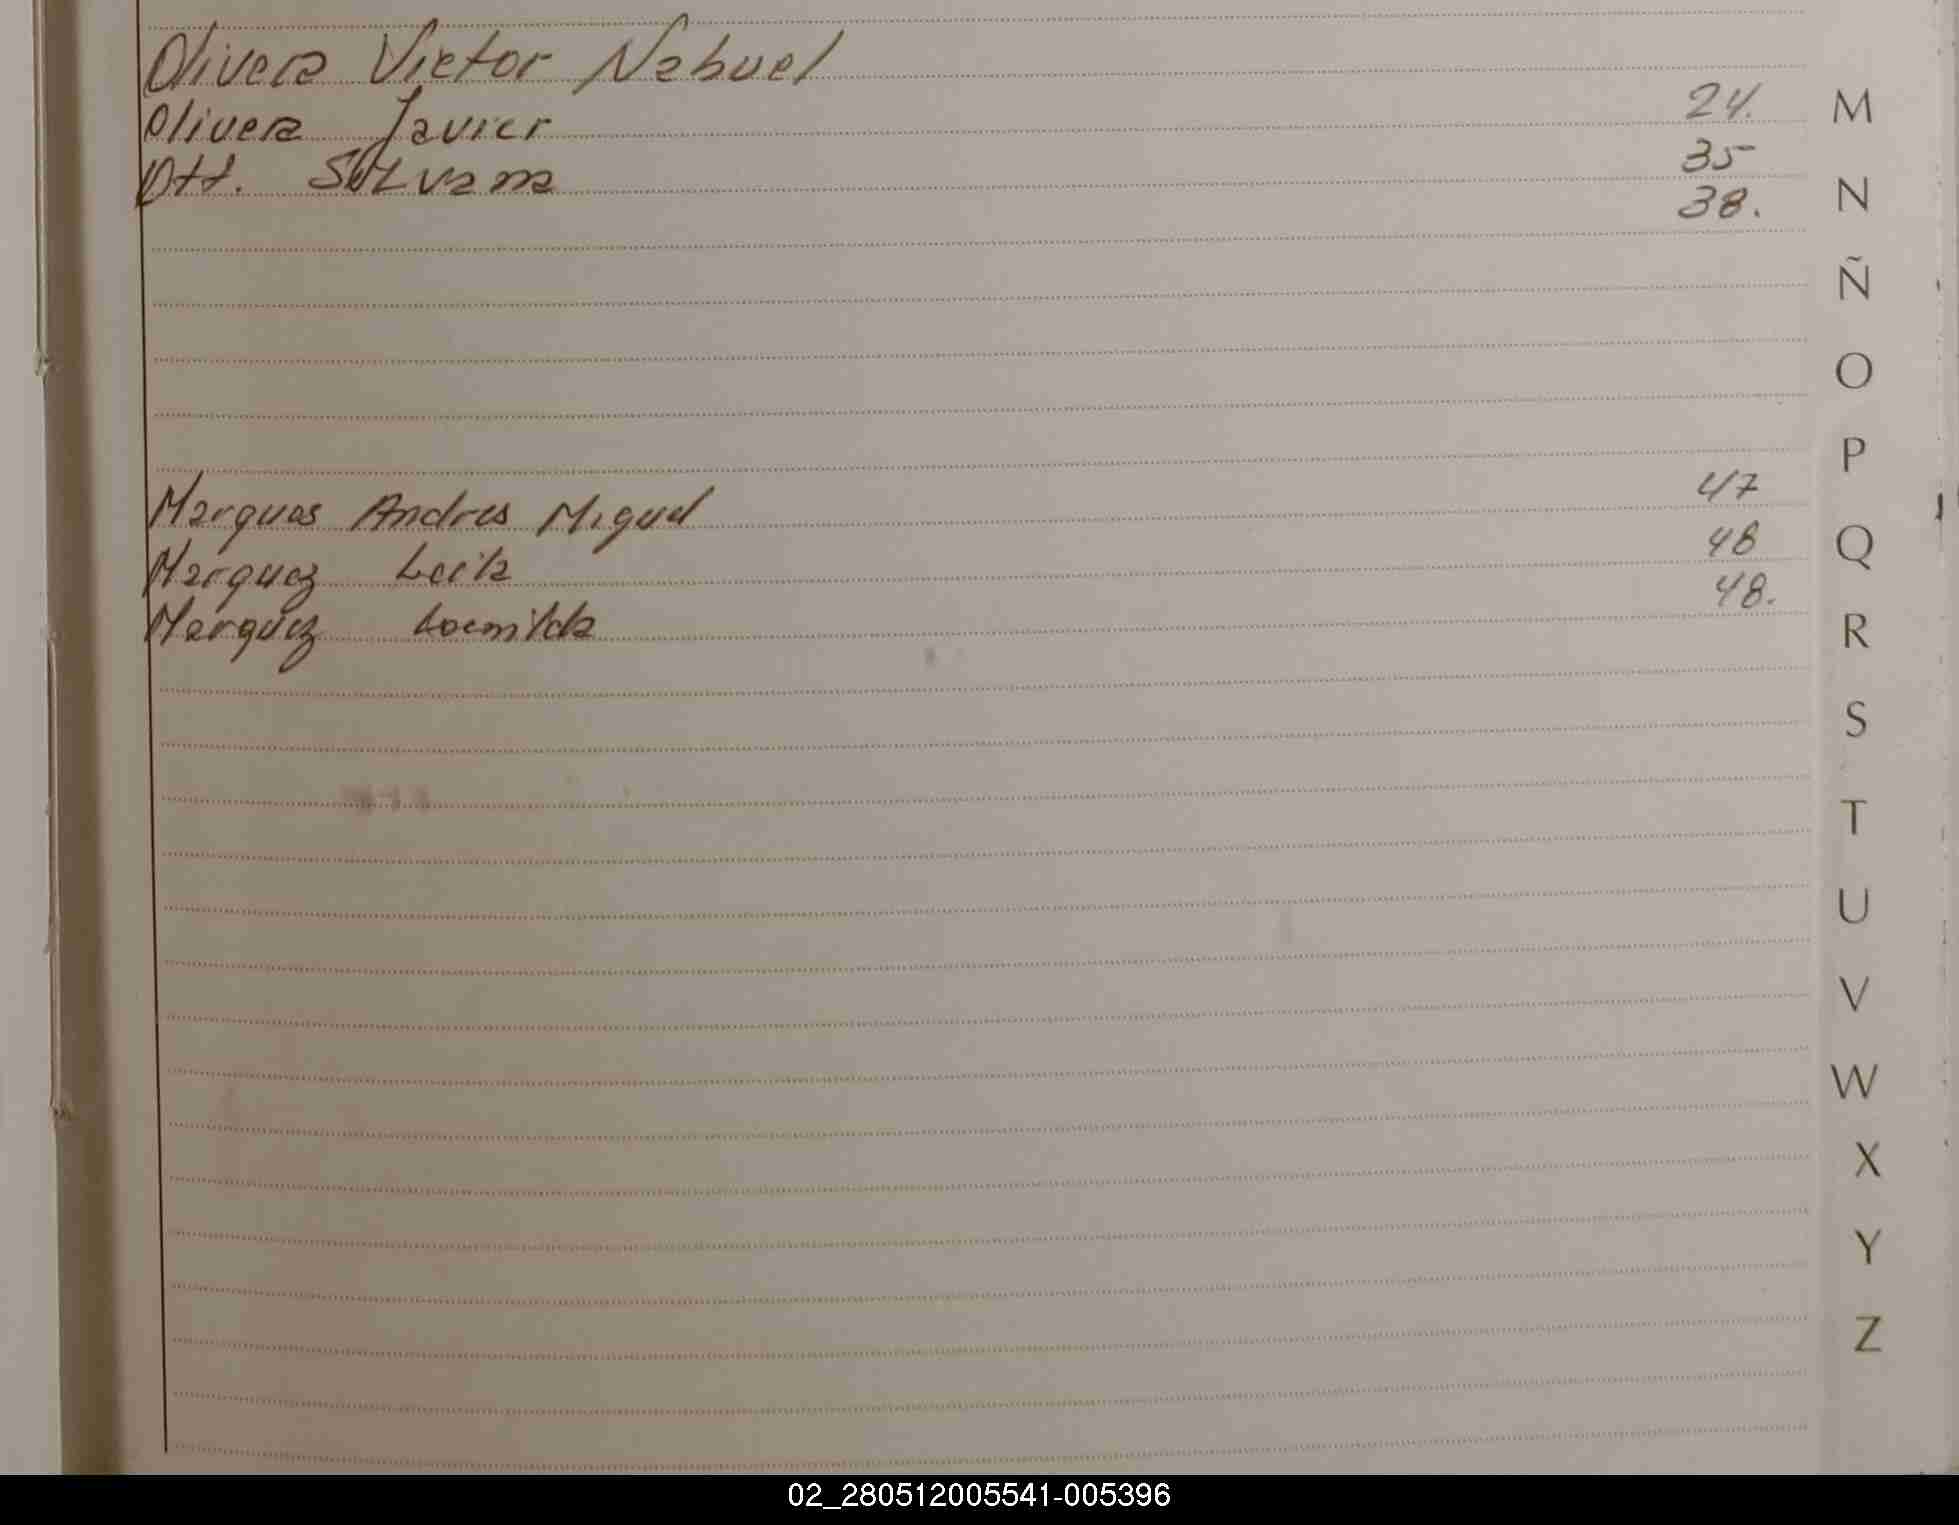 Olivera Victor Nahuel 24.
Olivera Javier 35
Ott. Silvana 38.
Marques Andres Miguel 47
Marquez Leila 48
Marquez 48.
M
N
Ñ
O
P
Q
R
S
T
U
V
W
X
Y
Z
02_280512005541-005396